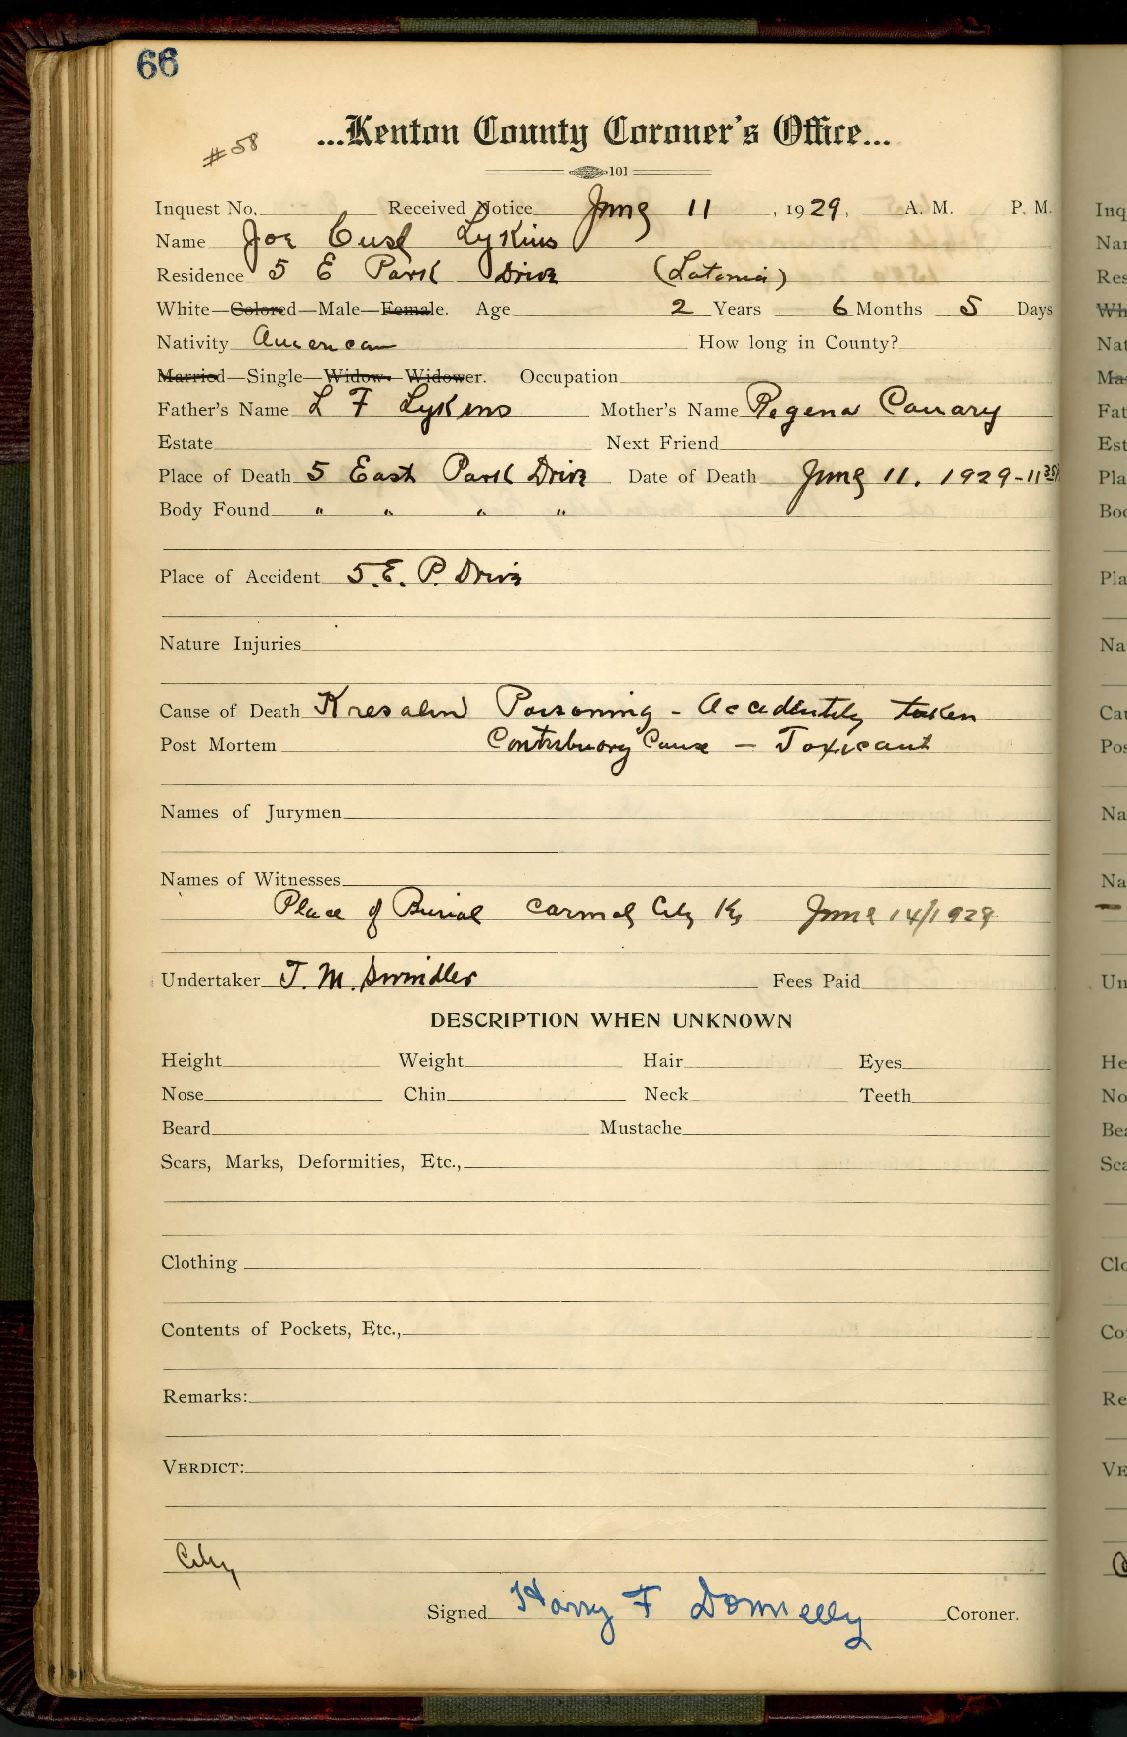 66
#58
...Kenton County Coroner's Office...
101
Inquest No. Received Notice June 11, 1929, A. M. P. M.
Name Joe Lykins
Residence 5 E Park Drive (Latonia)
White—Colored—Male—Female. Age 2 Years 6 Months 5 Days
Nativity American How long in County?
Married—Single—Widow—Widower. Occupation
Father's Name L F Lykins Mother's Name Regena Canary
Estate Next Friend
Place of Death 5 East Park Drive Date of Death June 11, 1929-11
Body Found " " " "
Place of Accident 5.E. P. Drive
Nature Injuries
Cause of Death Poisoning - Accidently taken
Post Mortem Contribuory Cause — Toxicant
Names of Jurymen
Names of Witnesses
Place of Burial Carmel City Ky June 14/1929
Undertaker J. M. Swindler Fees Paid
DESCRIPTION WHEN UNKNOWN
Height Weight Hair Eyes
Nose Chin Neck Teeth
Beard Mustache
Scars, Marks, Deformities, Etc.,
Clothing
Contents of Pockets, Etc.,
Remarks:
VERDICT:
City
Signed Harry F Donnelly Coroner.
Inq
Nar
Res
Wh
Nat
Ma
Fat
Est
Pla
Boo
Pla
Na
Cau
Pos
Na
Na
Un
He
No
Bea
Sca
Clo
Co
Re
VE